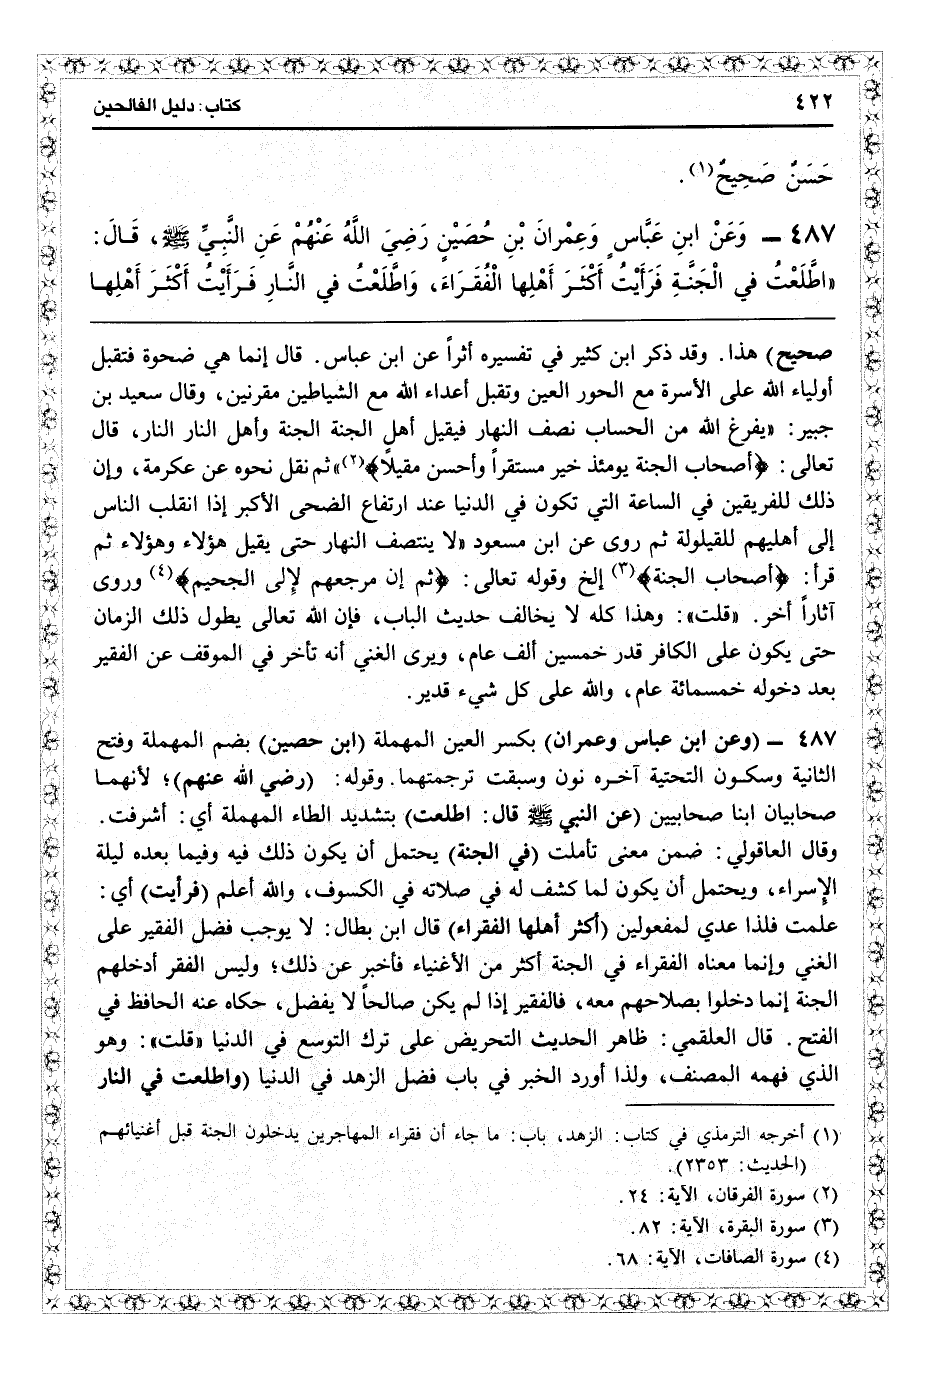 ٤٢٢ كتاب: دليل الفالحين
حَسَنٌ صَحِيحٌ(١).
٤٨٧ ـ وَعَنْ ابنِ عَبَّاسٍ وَعِمْرانَ بْنِ حُصَيْنٍ رَضِيَ اللَّهُ عَنْهُمْ عَنِ النَّبِيِّ ﷺ، قَالَ:
«اطَّلَعْتُ في الْجَنَّةِ فَرَأَيْتُ أَكْثَرَ أَهْلِها الْفُقَرَاءَ، وَاطَّلَعْتُ في النَّارِ فَرَأَيْتُ أَكْثَرَ أَهْلِهـا
صحيح) هذا. وقد ذكر ابن كثير في تفسيره أثراً عن ابن عباس. قال إنما هي ضحوة فتقبل
أولياء الله على الأسرة مع الحور العين وتقبل أعداء الله مع الشياطين مقرنين، وقال سعيد بن
جبير: «يفرغ الله من الحساب نصف النهار فيقيل أهل الجنة الجنة وأهل النار النار، قال
تعالى: ﴿أصحاب الجنة يومئذ خير مستقراً وأحسن مقيلاً﴾(٢)» ثم نقل نحوه عن عكرمة، وإن
ذلك للفريقين في الساعة التي تكون في الدنيا عند ارتفاع الضحى الأكبر إذا انقلب الناس
إلى أهليهم للقيلولة ثم روى عن ابن مسعود «لا ينتصف النهار حتى يقيل هؤلاء وهؤلاء ثم
قرأ: ﴿أصحاب الجنة﴾(٣) إلخ وقوله تعالى: ﴿ثم إن مرجعهم لإلى الجحيم﴾(٤) وروى
آثاراً أخر. «قلت»: وهذا كله لا يخالف حديث الباب، فإن الله تعالى يطول ذلك الزمان
حتى يكون على الكافر قدر خمسين ألف عام، ويرى الغني أنه تأخر في الموقف عن الفقير
بعد دخوله خمسمائة عام، والله على كل شيء قدير.
٤٨٧ ـ (وعن ابن عباس وعمران) بكسر العين المهملة (ابن حصين) بضم المهملة وفتح
الثانية وسكون التحتية آخره نون وسبقت ترجمتهما. وقوله: (رضي الله عنهم)؛ لأنهمـا
صحابيان ابنا صحابيين (عن النبي ﷺ قال: اطلعت) بتشديد الطاء المهملة أي: أشرفت.
وقال العاقولي: ضمن معنى تأملت (في الجنة) يحتمل أن يكون ذلك فيه وفيما بعده ليلة
الإسراء، ويحتمل أن يكون لما كشف له في صلاته في الكسوف، والله أعلم (فرأيت) أي:
علمت فلذا عدي لمفعولين (أكثر أهلها الفقراء) قال ابن بطال: لا يوجب فضل الفقير على
الغني وإنما معناه الفقراء في الجنة أكثر من الأغنياء فأخبر عن ذلك؛ وليس الفقر أدخلهم
الجنة إنما دخلوا بصلاحهم معه، فالفقير إذا لم يكن صالحاً لا يفضل، حكاه عنه الحافظ في
الفتح. قال العلقمي: ظاهر الحديث التحريض على ترك التوسع في الدنيا «قلت»: وهو
الذي فهمه المصنف، ولذا أورد الخبر في باب فضل الزهد في الدنيا (واطلعت في النار
(١) أخرجه الترمذي في كتاب: الزهد، باب: ما جاء أن فقراء المهاجرين يدخلون الجنة قبل أغنيائهم
(الحديث: ٢٣٥٣).
(٢) سورة الفرقان، الآية: ٢٤.
(٣) سورة البقرة، الآية: ٨٢.
(٤) سورة الصافات، الآية: ٦٨.